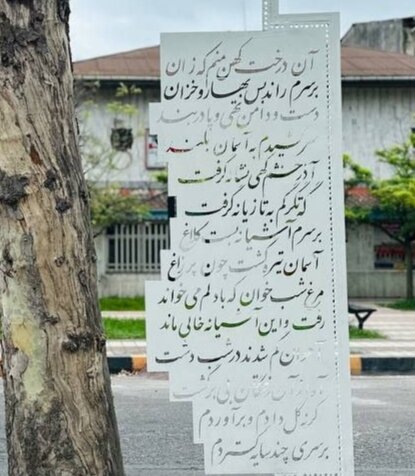 آن درخت کهن منم که زمان
بر سرم راند بس بهار و خزان
دست و دامن تهی و پا در بند
سر کشیدم به آسمان بلند
آذرخشم گهی نشانه گرفت
گه تگرگم به تازیانه گرفت
بر سرم آشیانه بست کلاغ
آسمان تیره گشت چون پر زاغ
مرغ شب خوان که با دلم می خواند
رفت و این آشیانه خالی ماند
آهوان گم شدند در شب دشت
آه از آن رفتگان بی برگشت
گر نه گل دادم و بر آوردم
بر سری چند سایه گستردم